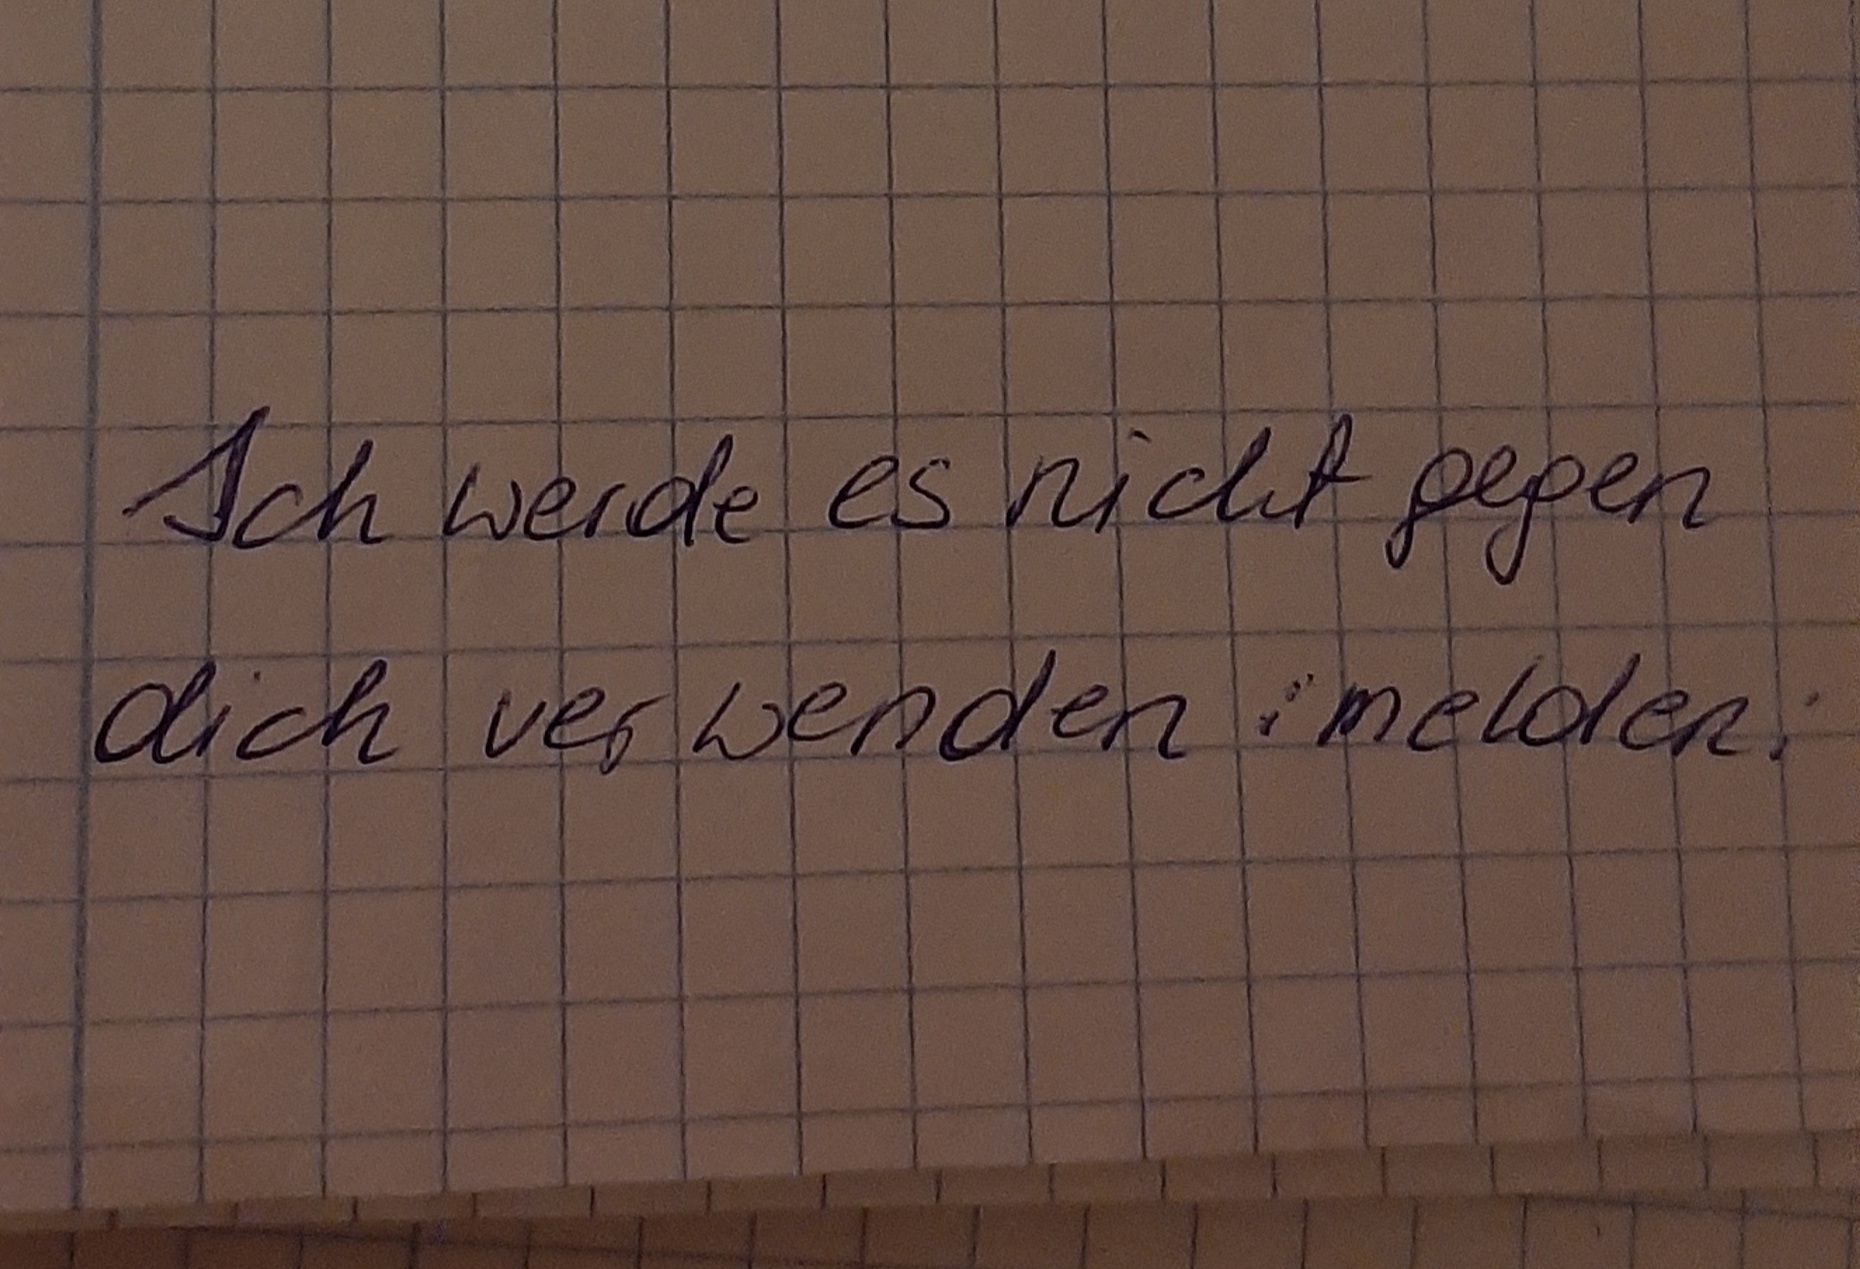 Ich werde es nicht gegen
dich verwenden :melden: